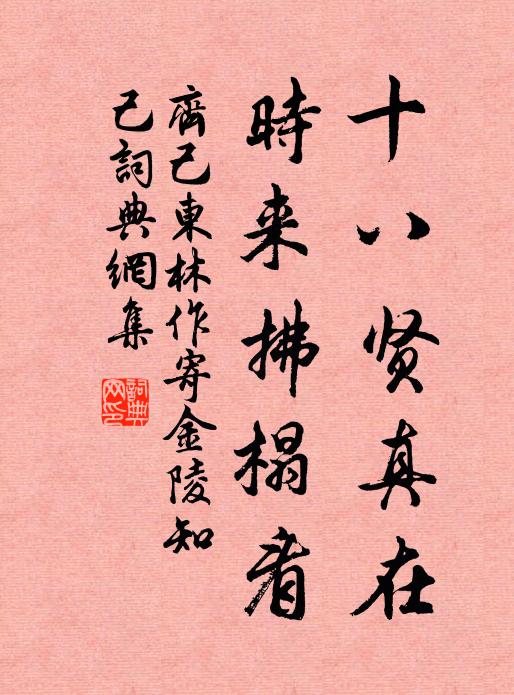 十八贤真在
時来拂榻看
齊己東林作寄金陵知
己詞典網集
詞典网印